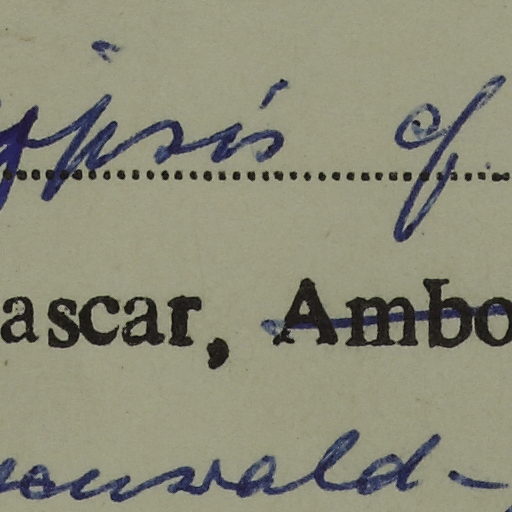 ipsis cf
ascar, Ambo
enwald-